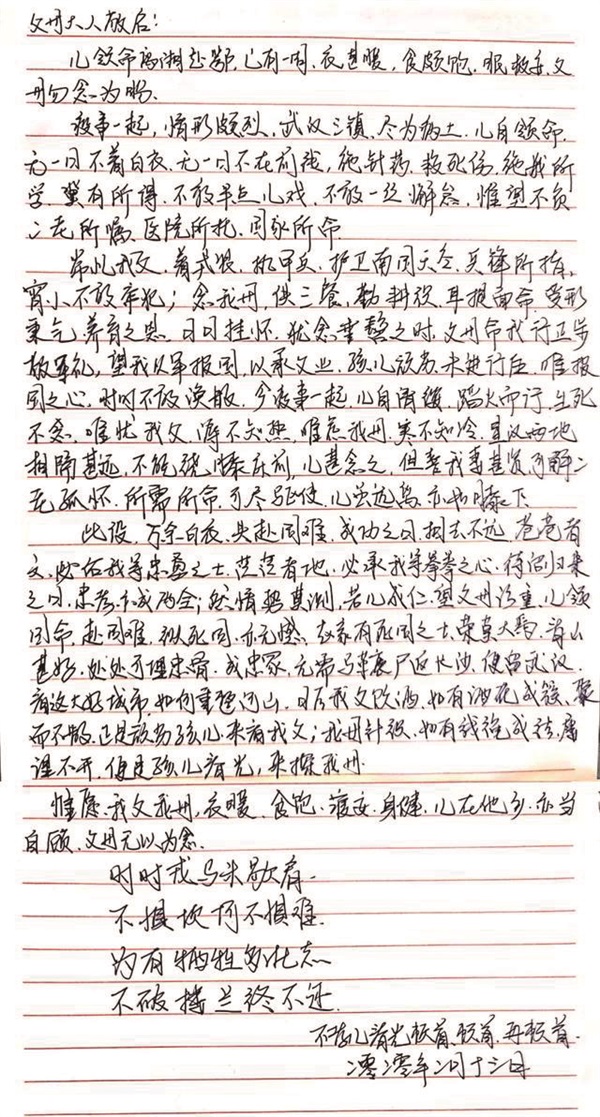 父母大人敬启:
儿领命离湘赴鄂,已有一周,衣甚暖,食颇饱,眠极安,父
母勿念为盼.
疫事一起,情形颇烈,武汉三镇,尽为病土,儿自领命,
无一日不着白衣,无一日不在前线,施针药,救死伤,施我所
学,冀有所得,不敢半点儿戏,不敢一丝懈怠,惟望不负
二老所嘱,医院所托,国家所命.
常忆我父,着戎装,振甲兵,护卫南国天空,兵锋所指,
宵小不敢牵犯;念我母,供三餐,勤耕役,耳提面命,受形
秉气,养育之恩,日日挂怀,犹念垂髫之时,父母命我行正步
敬军礼,望我以军报国,以承父业,孩儿顽劣,未进行伍,唯报
国之心,时时不敢涣散,今疫事一起,儿自请缨,蹈火而行,生死
不念,唯忧我父,溽不知热,唯虑我母,寒不知冷,星汉两地
相隔甚远,不能绕膝床前,儿甚念之,但妻我事甚贤,可解二
老孤怀,所需所命,可尽驱使,儿虽远离,亦如膝下.
此役,万余白衣,共赴国难,成功之日,相去不远,苍苍者
天,必佑我等忠勇之士,茫茫者地,必承我等拳拳之心,待诏归来
之日,忠孝亦成两全;然情势莫测,若儿成仁,望父母珍重,儿领
国命,赴国难,纵死国,亦无憾,赵家有死国之士,荣莫大焉,青山
甚好,处处可埋忠骨,成忠冢,无需马革裹尸返长沙,便留武汉,
看这大好城市,如何重整河山,日后我父饮酒,如有酒花成簇,聚
而不散,正是顽劣孩儿,来看我父;我母针织,如有线绕成结,屡
理不开,便是孩儿春光,来探我母.
惟愿,我父我母,衣暖,食饱,寝安,身健,儿在他乡,亦当
自顾,父母无以为念.
时时戎马未歇肩.
不惧坎坷不惧难
为有牺牲多壮志
不破楼兰终不还.
不孝儿春光顿首,顿首,再顿首.
二零二零年二月十三日